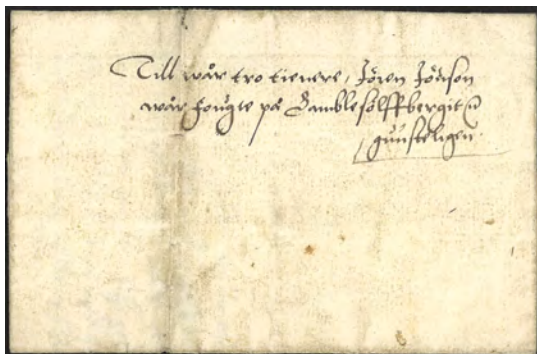 Till wår tro tienere, Jören Jönson
wår fougte på Gamblesölffbergit
gunsteligen.